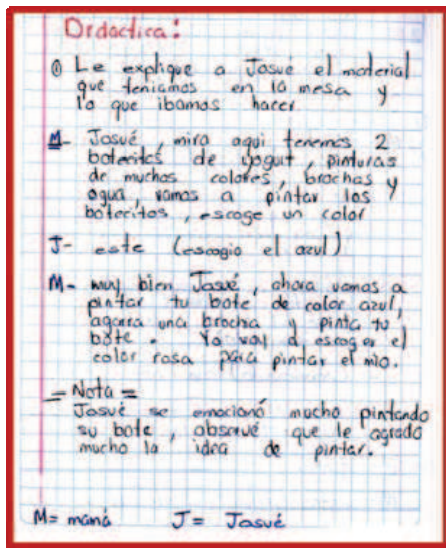 Didactica:
① Le explique a Josué el material
que teniamos en la mesa y
lo que ibamos hacer
M- Josué, mira aqui tenemos 2
botecitos de yogurt, pinturas
de muchos colores, brochas y
agua, vamos a pintar los
botecitos, escoge un color
J- este (escogio el azul)
M- muy bien Josué, ahora vamos a
pintar tu bote de color azul,
agarra una brocha y pinta tu
bote. Yo voy a escoger el
color rosa para pintar el mio.
= Nota =
Josué se emocionó mucho pintando
su bote, observé que le agradó
mucho la idea de pintar.
M= mamá J= Josué